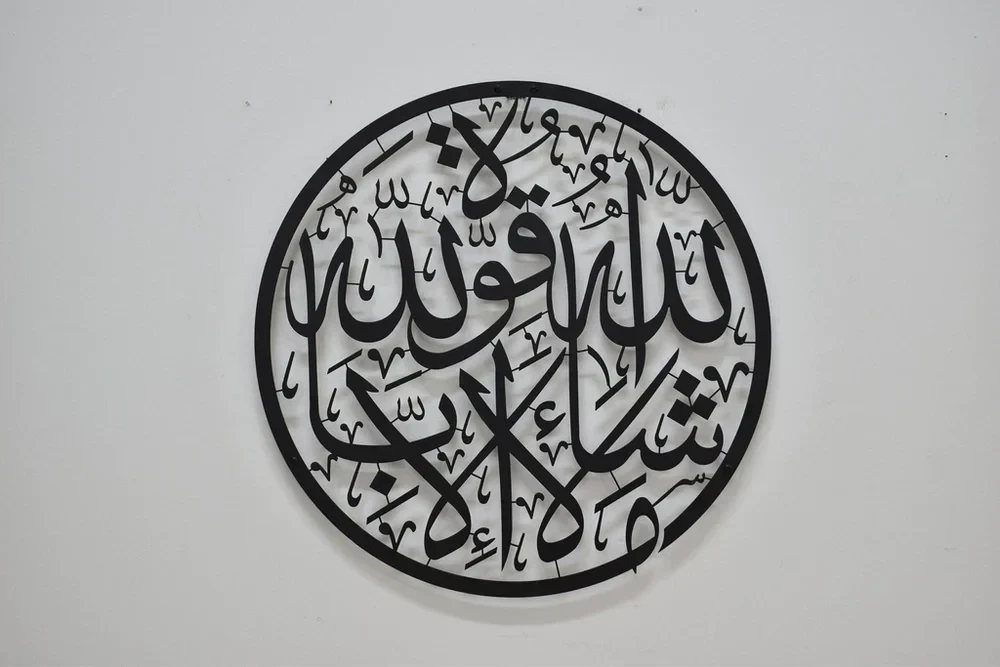 مَا شَاءَ اللهُ لَا قُوَّةَ إِلَّا بِاللهِ